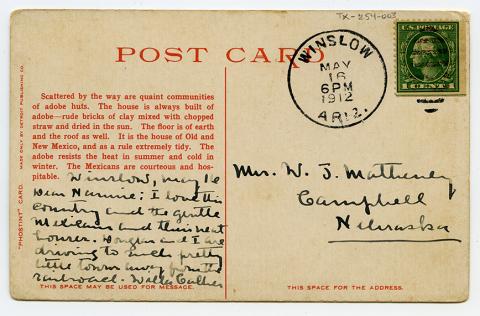 TX-254-003
POST CARD
WINSLOW
MAY
16
6PM
1912
ARIZ.
U.S. POSTAGE
1 CENT 1
Scattered by the way are quaint communities
of adobe huts. The house is always built of
adobe—rude bricks of clay mixed with chopped
straw and dried in the sun. The floor is of earth
and the roof as well. It is the house of Old and
New Mexico, and as a rule extremely tidy. The
adobe resists the heat in summer and cold in
winter. The Mexicans are courteous and hos-
pitable.
Winslow, May 16
Dear Nannie: I love this
country and the gentle
Mexicans and their neat
houses. Douglas and I are
driving to such pretty
little towns away from the
railroad. Willa Cather
Mrs. W. J. Matheney
Campbell
Nebraska
"PHOSTINT" CARD.
MADE ONLY BY DETROIT PUBLISHING CO.
THIS SPACE MAY BE USED FOR MESSAGE.
THIS SPACE IS FOR THE ADDRESS.